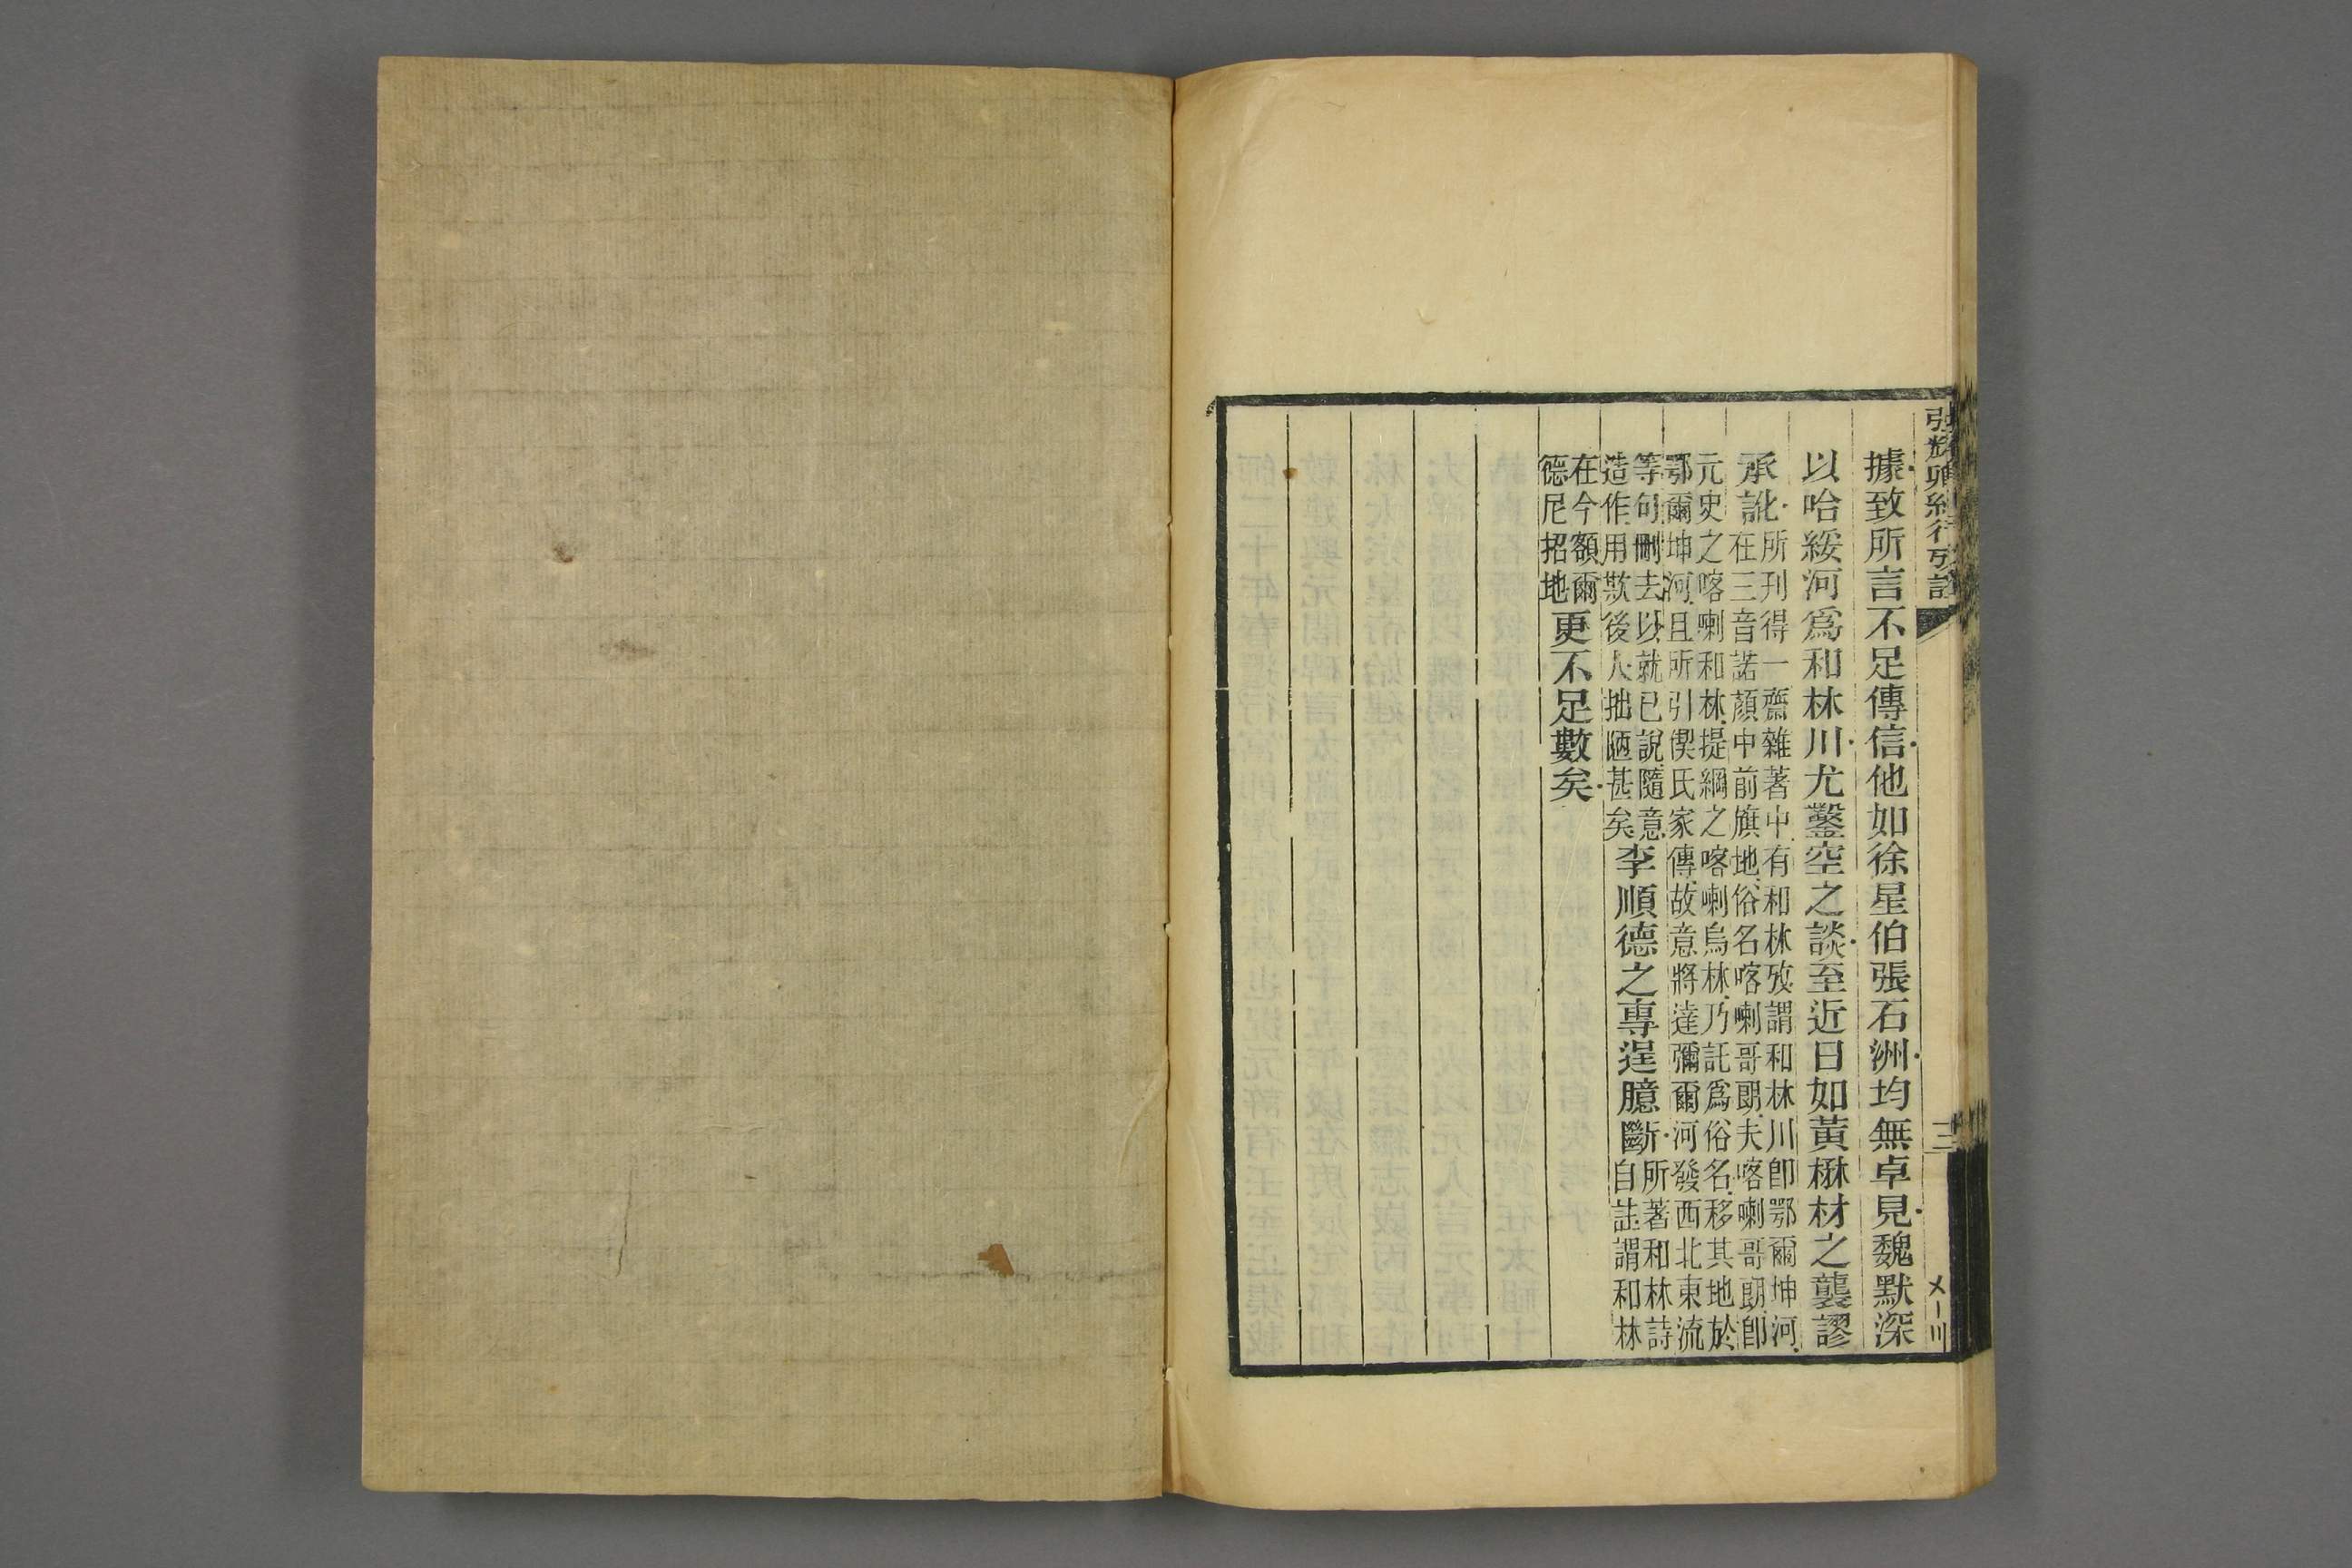 張耀卿紀行攷註
三
〤〡〣
據致所言不足傳信他如徐星伯張石洲均無卓見魏默深
以哈綏河爲和林川尤鑿空之談至近日如黃楙材之襲謬
承訛所刊得一齋雜著中有和林攷謂和林川卽鄂爾坤河
在三音諾顏中前旗地俗名喀喇哥郎夫喀喇哥郎卽
元史之喀喇和林提綱之喀喇烏林乃託爲俗名移其地於
鄂爾坤河且所引偰氏家傳故意將達彌爾河發西北東流
等句刪去以就已說隨意
造作用欺後人拙陋甚矣李順德之專逞臆斷所著和林詩
自註謂和林
在今額爾
德尼招地更不足數矣